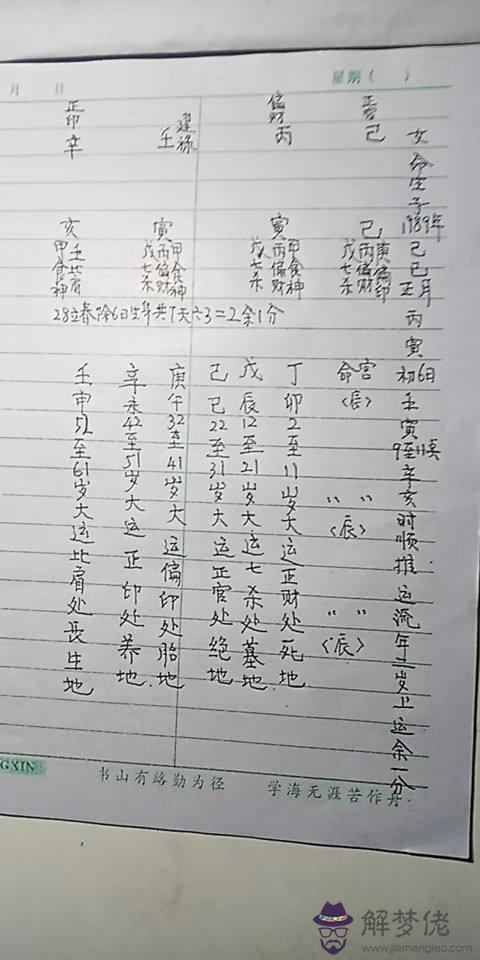 月 日 星期( )
女命生于1989年己巳正月丙寅初6日壬寅9至11点辛亥时顺推运流年二岁上运余一分
己
偏财 丙
建禄 壬
正印 辛
己 庚偏印 丙偏财 戊七杀
寅 甲食神 丙偏财 戊七杀
寅 甲食神 丙偏财 戊七杀
亥 壬比肩 甲食神
28立春除6日生年共7天六3=2余1分
命宫〈辰〉
〃 〃〈辰〉
〃 〃〈辰〉
丁卯2至11岁大运正财处死地
戊辰12至21岁大运七杀处墓地
己巳22至31岁大运正官处绝地
庚午32至41岁大运偏印处胎地
辛未42至51岁大运正印处养地
壬申52至61岁大运比肩处长生地
GXIN
书山有路勤为径 学海无涯苦作舟
解梦佬
www.jiemenglao.com